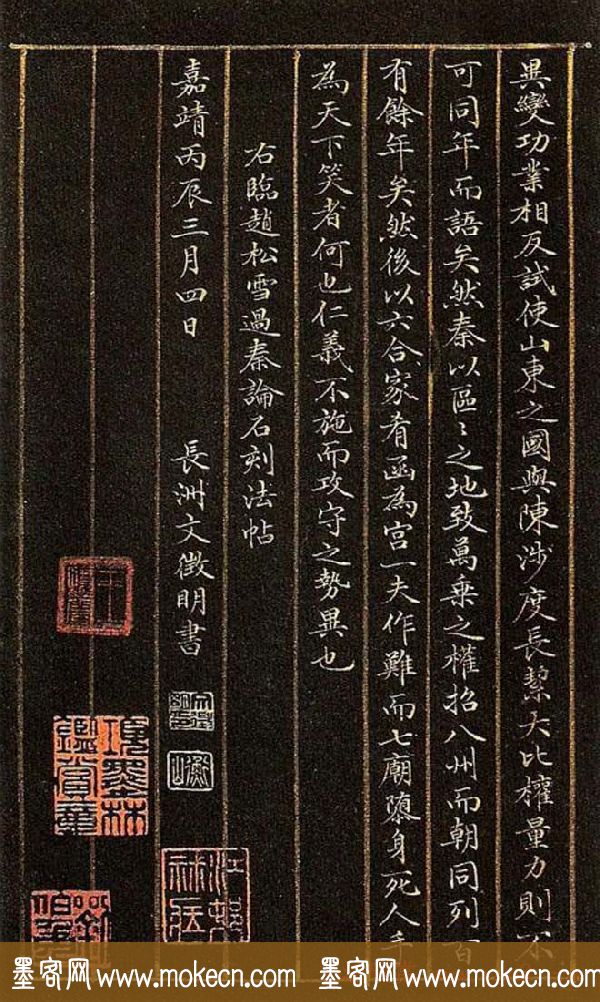 異變功業相反試使山東之國與陳涉度長絜大比權量力則不
可同年而語矣然秦以區〻之地致萬乘之權招八州而朝同列百
有餘年矣然後以六合家肴函為宮一夫作難而七廟隳身死人手
為天下笑者何也仁義不施而攻守之勢異也
右臨趙松雪過秦論石刻法帖
嘉靖丙辰三月四日 長洲文徵明書
項墨林
鑑賞章
墨客网 www.mokecn.com 墨客网 www.mokecn.com